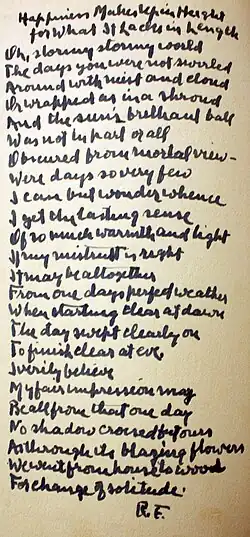 Happiness Makes Up in Height
for What It Lacks in Length
Oh, stormy stormy world
The days you were not swirled
Around with mist and cloud
Or wrapped as in a shroud
And the sun's brilliant ball
Was not in part or all
Obscured from mortal view—
Were days so very few
I can but wonder whence
I get the lasting sense
Of so much warmth and light
If my mistrust is right
It may be altogether
From one day's perfect weather
When starting clear at dawn
The day swept clearly on
To finish clear at eve.
I verily believe
My fair impression may
Be all from that one day
No shadow crossed but ours
As through its blazing flowers
We went from house to wood
For change of solitude.
R.F.